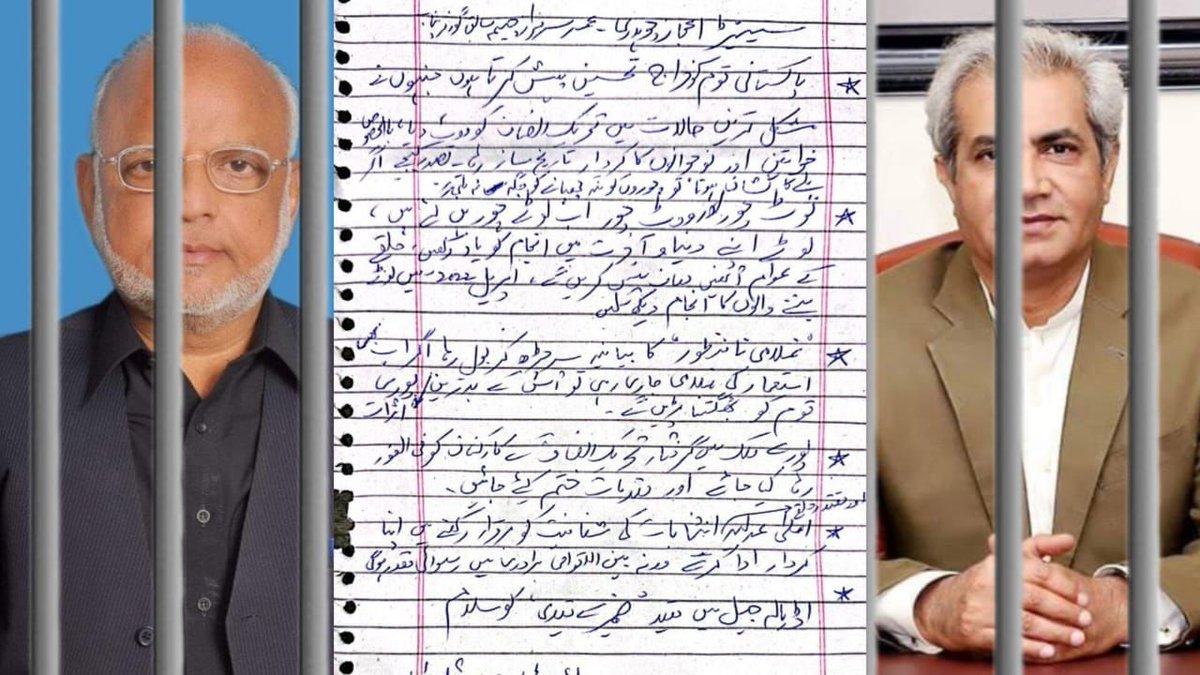 سینیٹر اعجاز چوہدری - عمر سرفراز چیمہ سابق گورنر پنجاب
* پاکستانی قوم کو خراج تحسین پیش کرتا ہوں جنہوں نے
مشکل ترین حالات میں تحریک انصاف کو ووٹ دیا، بالخصوص
خواتین اور نوجوانوں کا کردار تاریخ ساز رہا - تصور کیجئے اگر
بلے کا نشان ہوتا تو چوروں کو منہ چھپانے کو جگہ نہ ملتی
* نوٹ چور اور ووٹ چور اب لوٹے چور بن گئے ہیں،
لوٹے اپنے دنیا و آخرت میں انجام کو یاد رکھیں، حلقے
کے عوام انہیں معاف نہیں کریں گے، اپریل 2022 میں لوٹے
بننے والوں کا انجام دیکھ لیں
* "غلامی نامنظور" کا بیانیہ سر چڑھ کر بول رہا اگر اب بھی
استعمار کی غلامی جاری رہی تو اس کے بدترین اثرات پوری
قوم کو بھگتنا پڑیں گے -
* پورے ملک میں گرفتار تحریک انصاف کے کارکنان کو فی الفور
رہا کیا جائے اور مقدمات ختم کیے جائیں -
* اعلیٰ عدلیہ اور مقتدر حلقے انتخابات کی شفافیت کو برقرار رکھنے میں اپنا
کردار ادا کرتے ورنہ بین الاقوامی برادری میں رسوائی مقدر ہوگی
* اڈیالہ جیل میں قید "ضمیر کے قیدی" کو سلام